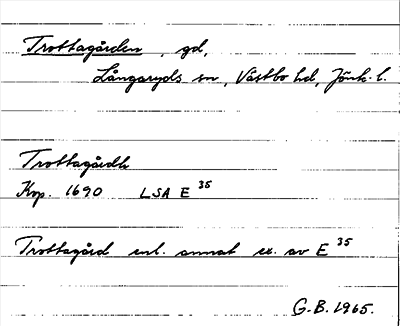 Trottagården, gd,
Långaryds sn, Västbo hd, Jönk. l.
Trottagårdh
Kop. 1690 LSA E 35
Trottagård enl. annat ex. av E 35
G.B. 1965.